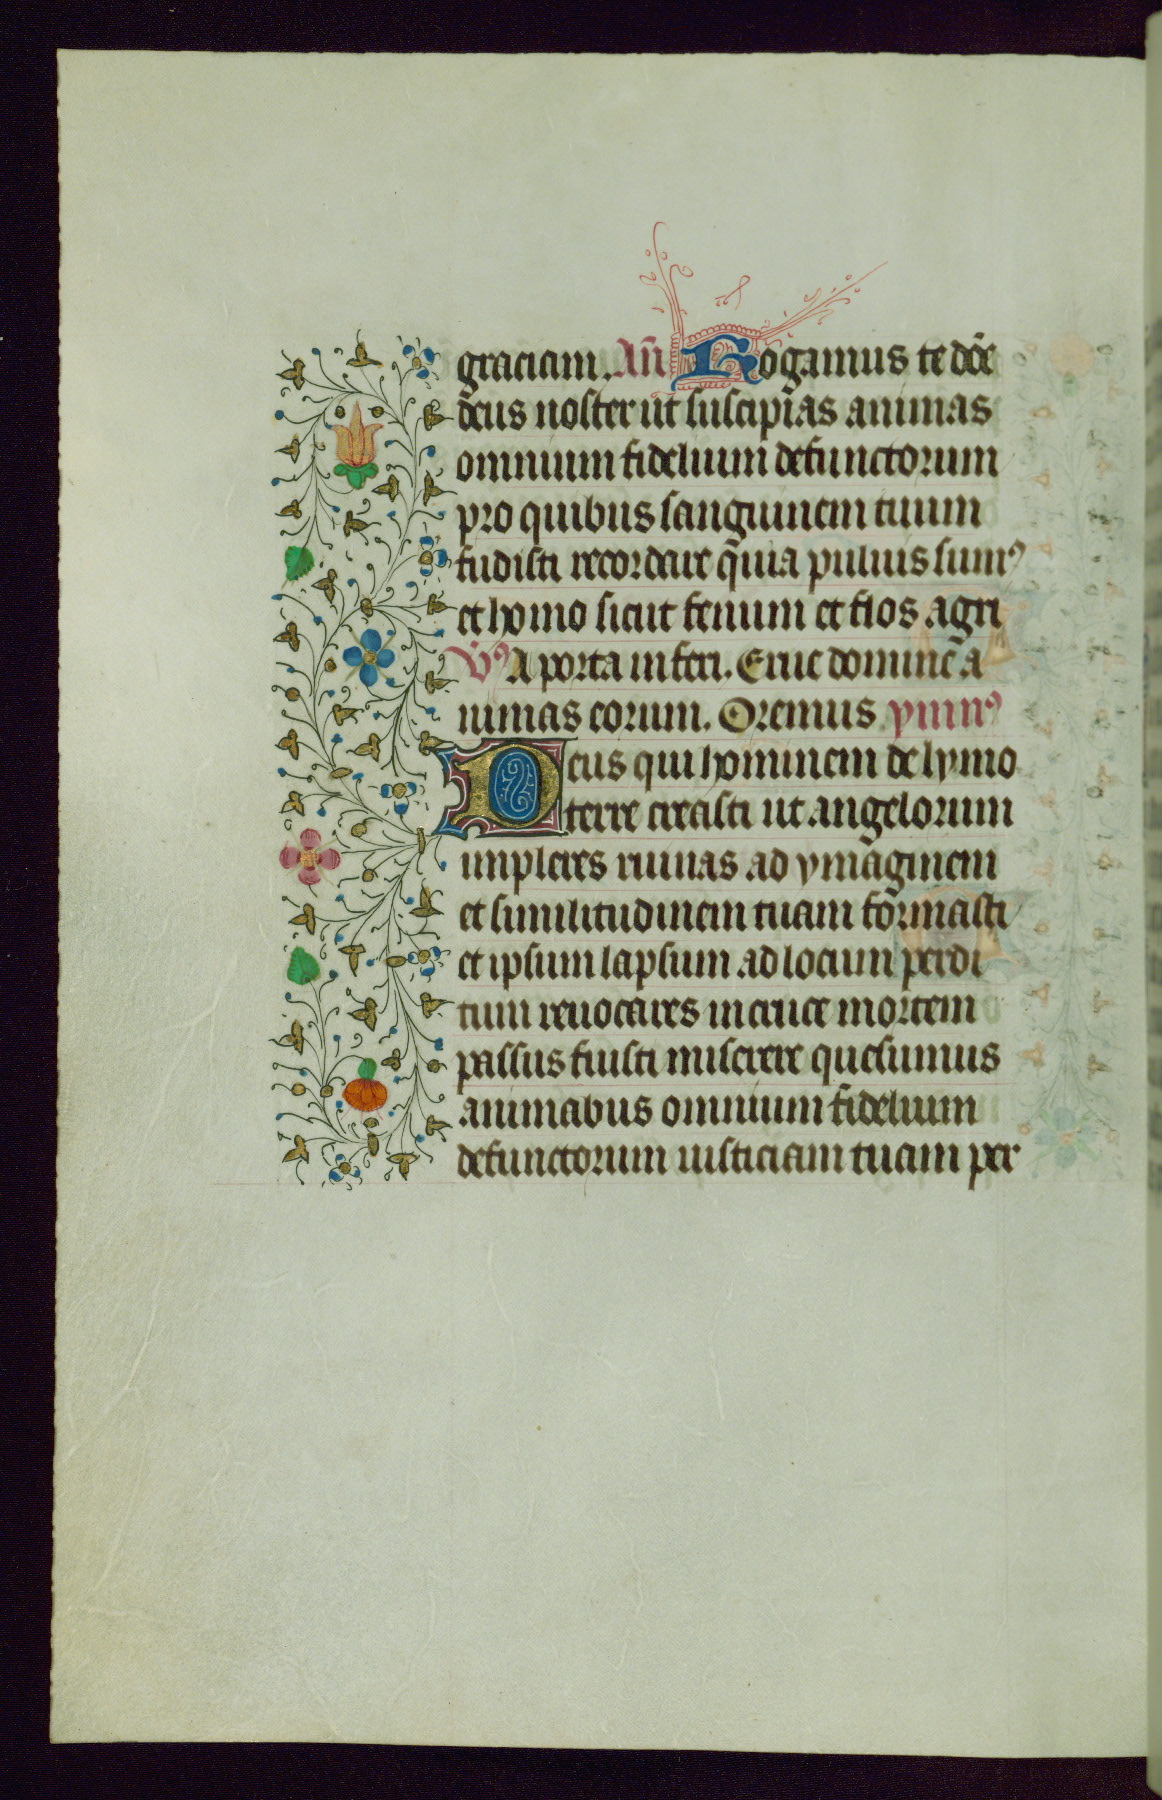 graciam. Añ Rogamus te dñe
deus noster ut suscipias animas
omnium fidelium defunctorum
pro quibus sanguinem tuum
fudisti recordare quia puluis sumꝰ
et homo sicut fenum et flos agri
V̉ꝰ A porta inferi. Erue domine a
nimas eorum. Oremus. ymnꝰ
Deus qui hominem de lymo
terre creasti ut angelorum
impleres ruinas ad ymaginem
et similitudinem tuam formasti
et ipsum lapsum ad locum perdi
tum reuocares in cruce mortem
passus fuisti miserere quesumus
animabus omnium fidelium
defunctorum iusticiam tuam per